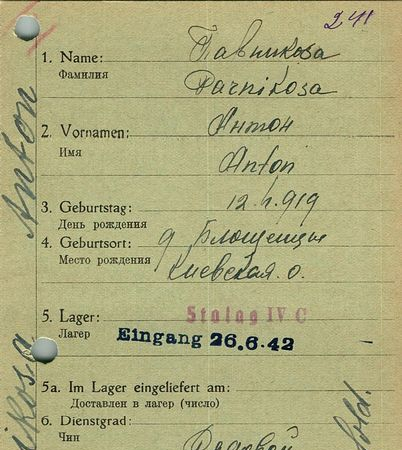 241
1. Name: Павникоза
Фамилия Parnikosa
2. Vornamen: Антон
Имя Anton
3. Geburtstag: 12.4.919
День рождения
4. Geburtsort: д. Блощенцы
Место рождения Киевская о.
5. Lager: Stalag IV C
Лагер Eingang 26.6.42
5a. Im Lager eingeliefert am:
Доставлен в лагер (число)
6. Dienstgrad: Рядовой
Чин
Anton
ikosa
Sold.